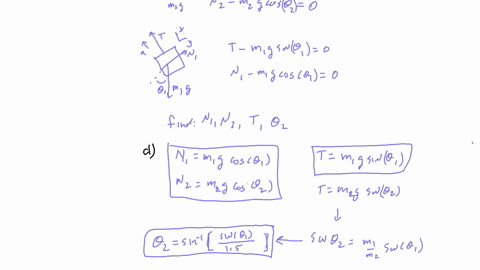 m₂g N₂ - m₂g cos(θ₂) = 0
x
y
T
a
N₁
θ₁
m₁g
T - m₁g sin(θ₁) = 0
N₁ - m₁g cos(θ₁) = 0
find: N₁, N₂, T, θ₂
d)
N₁ = m₁g cos(θ₁)
N₂ = m₂g cos(θ₂)
T = m₁g sin(θ₁)
T = m₂g sin(θ₂)
↓
θ₂ = sin⁻¹[sin(θ₁)/1.5] ← sinθ₂ = m₁/m₂ sin(θ₁)